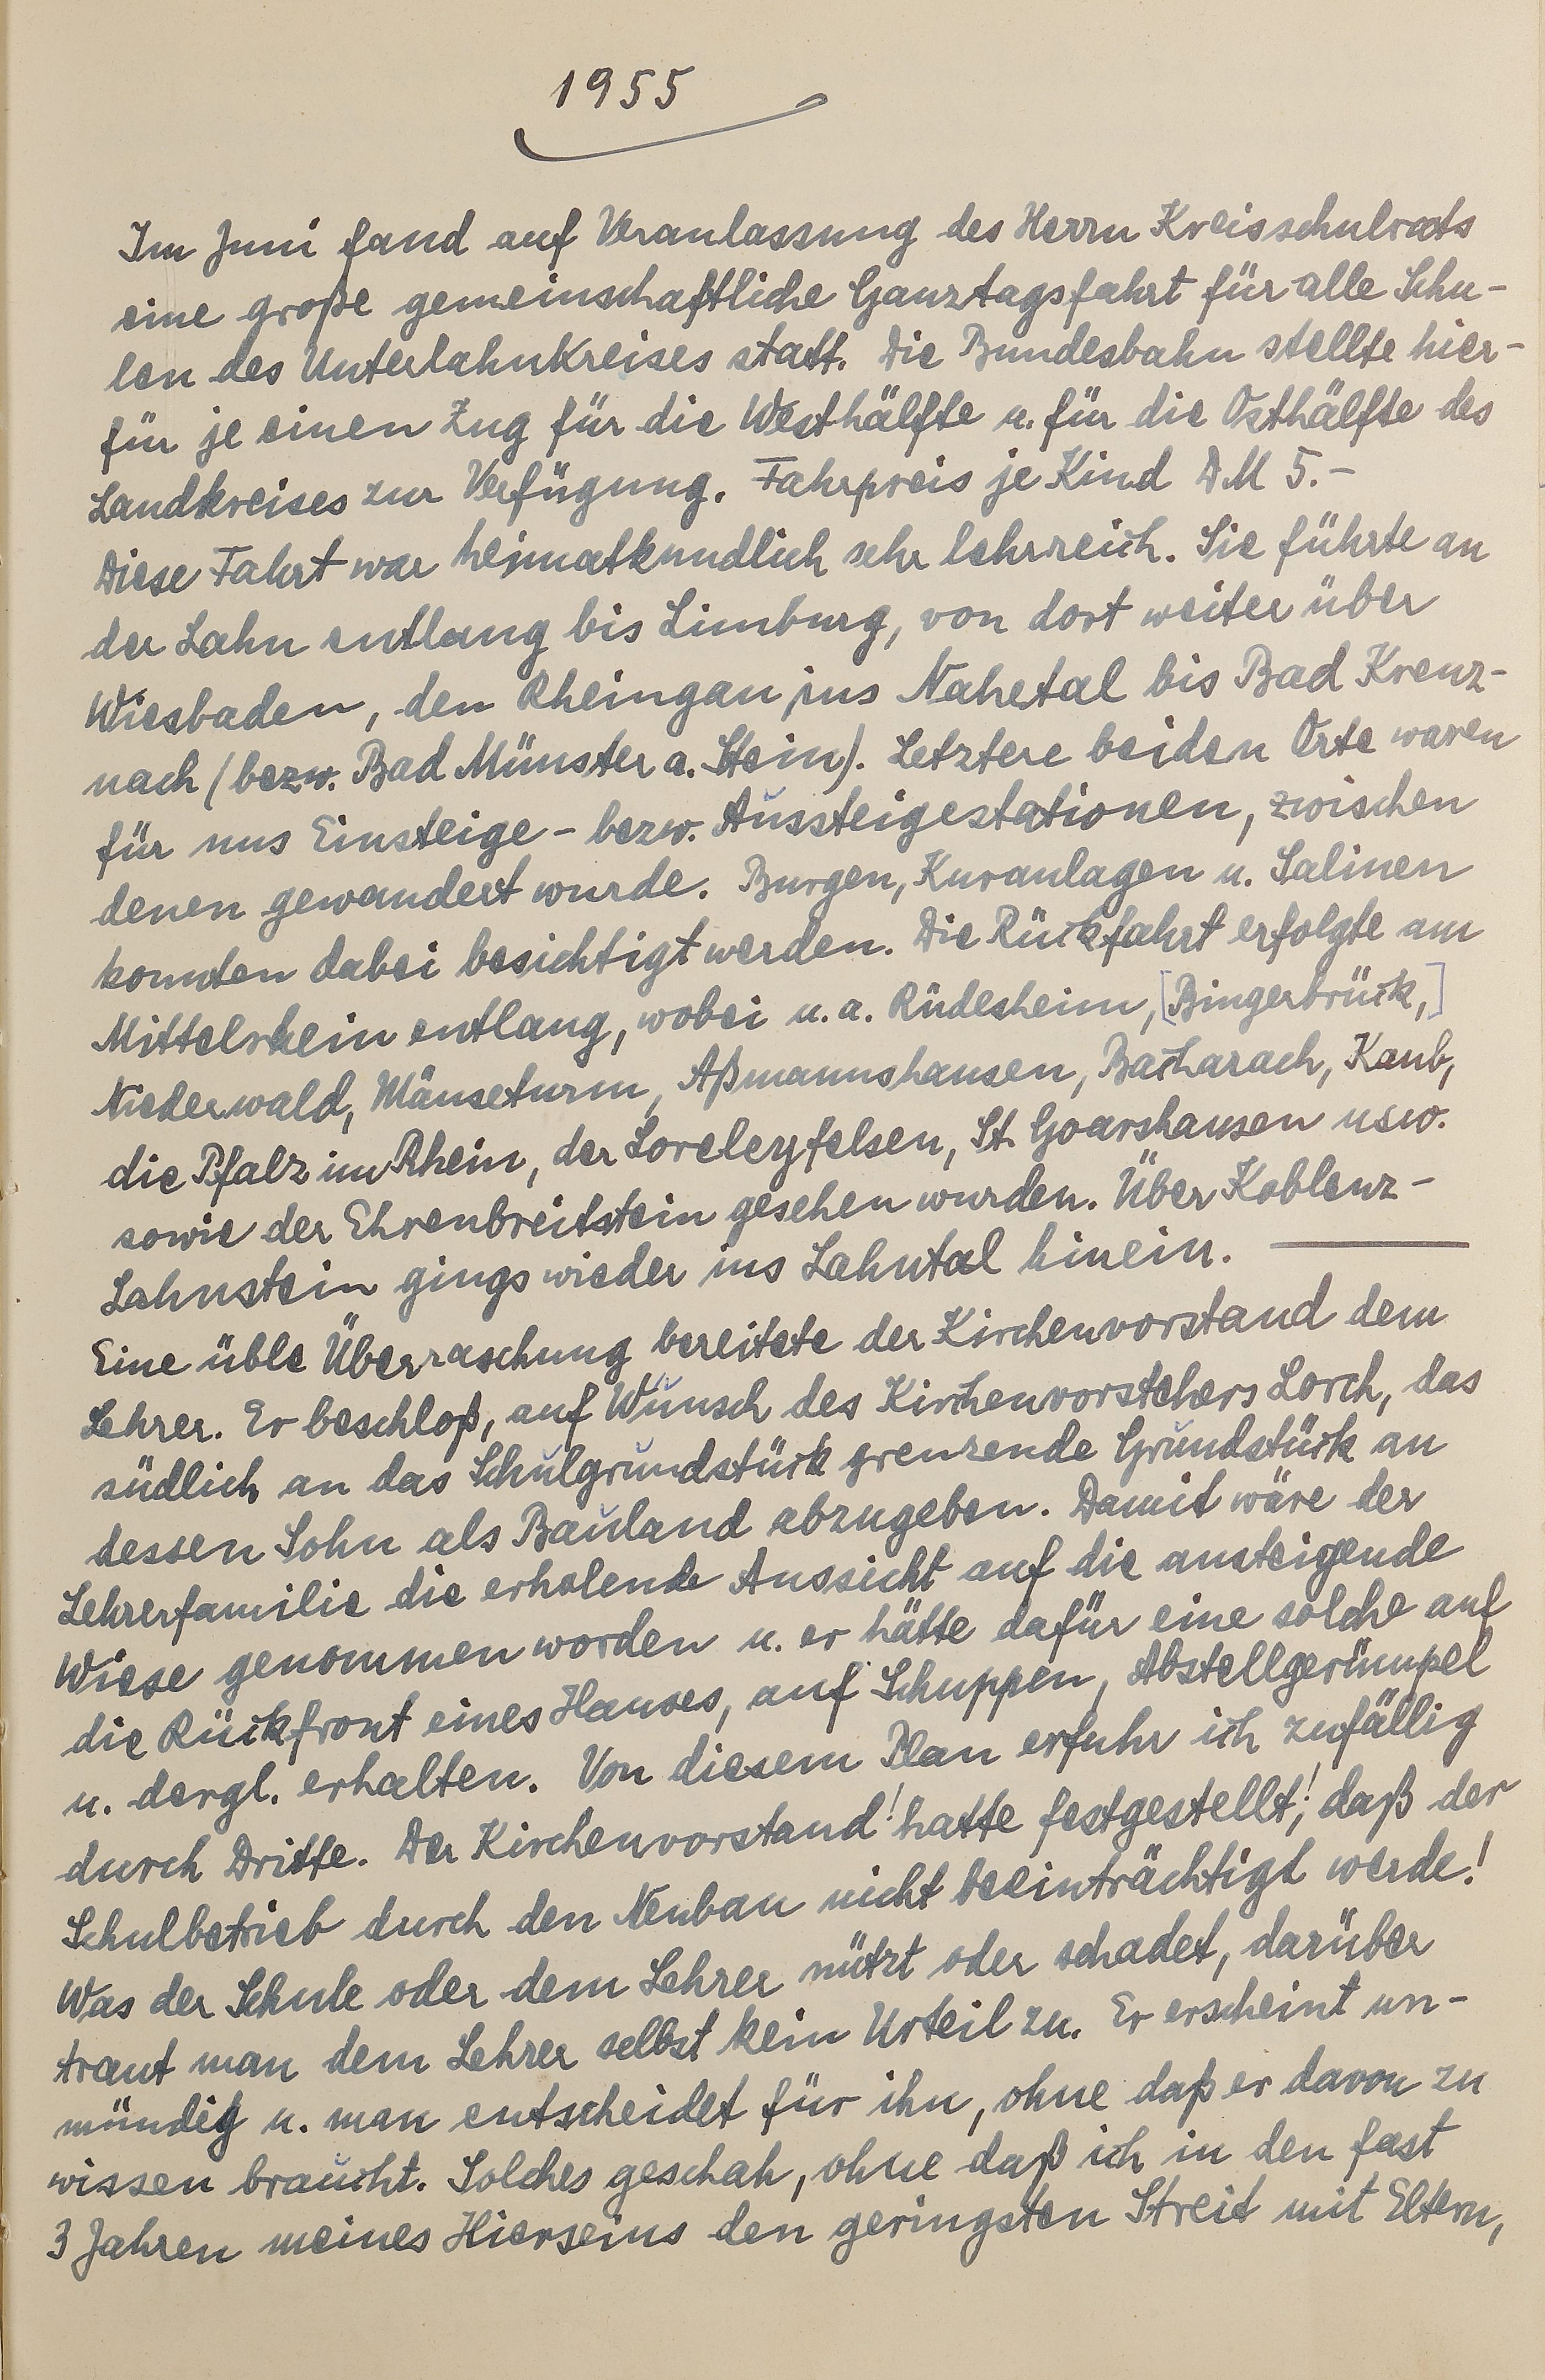 1955
Im Juni fand auf Veranlassung des Herrn Kreisschulrats
eine große gemeinschaftliche Ganztagsfahrt für alle Schu-
len des Unterlahnkreises statt. Die Bundesbahn stellte hier-
für je einen Zug für die Westhälfte u. für die Osthälfte des
Landkreises zur Verfügung. Fahrpreis je Kind DM 5.-
Diese Fahrt war heimatkundlich sehr lehrreich. Sie führte an
der Lahn entlang bis Limburg, von dort weiter über
Wiesbaden, den Rheingau ins Nahetal bis Bad Kreuz-
nach (bezw. Bad Münster a. Stein). Letztere beiden Orte waren
für uns Einsteige- bezw. Aussteigestationen, zwischen
denen gewandert wurde. Burgen, Kuranlagen u. Salinen
konnten dabei besichtigt werden. Die Rückfahrt erfolgte am
Mittelrhein entlang, wobei u. a. Rüdesheim, [Bingerbrück,]
Niederwald, Mäuseturm, Aßmannshausen, Bacharach, Kaub,
die Pfalz im Rhein, der Loreleyfelsen, St. Goarshausen usw.
sowie der Ehrenbreitstein gesehen wurden. Über Koblenz-
Lahnstein gings wieder ins Lahntal hinein.
Eine üble Überraschung bereitete der Kirchenvorstand dem
Lehrer. Er beschloß, auf Wunsch des Kirchenvorstehers Lorch, das
südlich an das Schulgrundstück grenzende Grundstück an
dessen Sohn als Bauland abzugeben. Damit wäre der
Lehrerfamilie die erholende Aussicht auf die ansteigende
Wiese genommen worden u. er hätte dafür eine solche auf
die Rückfront eines Hauses, auf Schuppen, Abstellgerümpel
u. dergl. erhalten. Von diesem Plan erfuhr ich zufällig
durch Dritte. Der Kirchenvorstand! hatte festgestellt!, daß der
Schulbetrieb durch den Neubau nicht beeinträchtigt werde!
Was der Schule oder dem Lehrer nützt oder schadet, darüber
traut man dem Lehrer selbst kein Urteil zu. Er erscheint un-
mündig u. man entscheidet für ihn, ohne daß er davon zu
wissen braucht. Solches geschah, ohne daß ich in den fast
3 Jahren meines Hierseins den geringsten Streit mit Eltern,